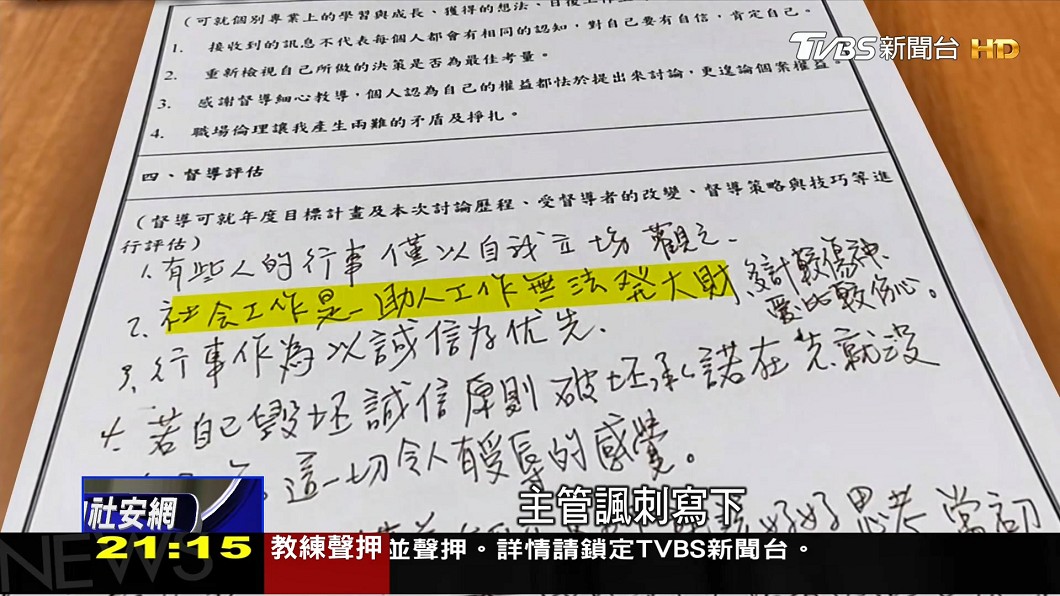 （可就個別專業上的學習與成長、獲得的想法、日後工作上
TVBS新聞台 HD
1. 接收到的訊息不代表每個人都會有相同的認知，對自己要有自信，肯定自己。
2. 重新檢視自己所做的決策是否為最佳考量。
3. 感謝督導細心教導，個人認為自己的權益都怯於提出來討論，更遑論個案權益。
4. 職場倫理讓我產生兩難的矛盾及掙扎。
四、督導評估
（督導可就年度目標計畫及本次討論歷程、受督導者的改變、督導策略與技巧等進
行評估）
1. 有些人的行事僅以自我立場觀之.
2. 社会工作是一助人工作無法發大財,多計較傷神,
愛比較傷心。
3. 行事作為以誠信為优先.
4. 若自己毀坏誠信原則破坏承諾在先就没
這一切令人有受辱的感覺。
好好思考當初
主管諷刺寫下
社安網
21:15
教練聲押 並聲押。詳情請鎖定TVBS新聞台。
NEWS